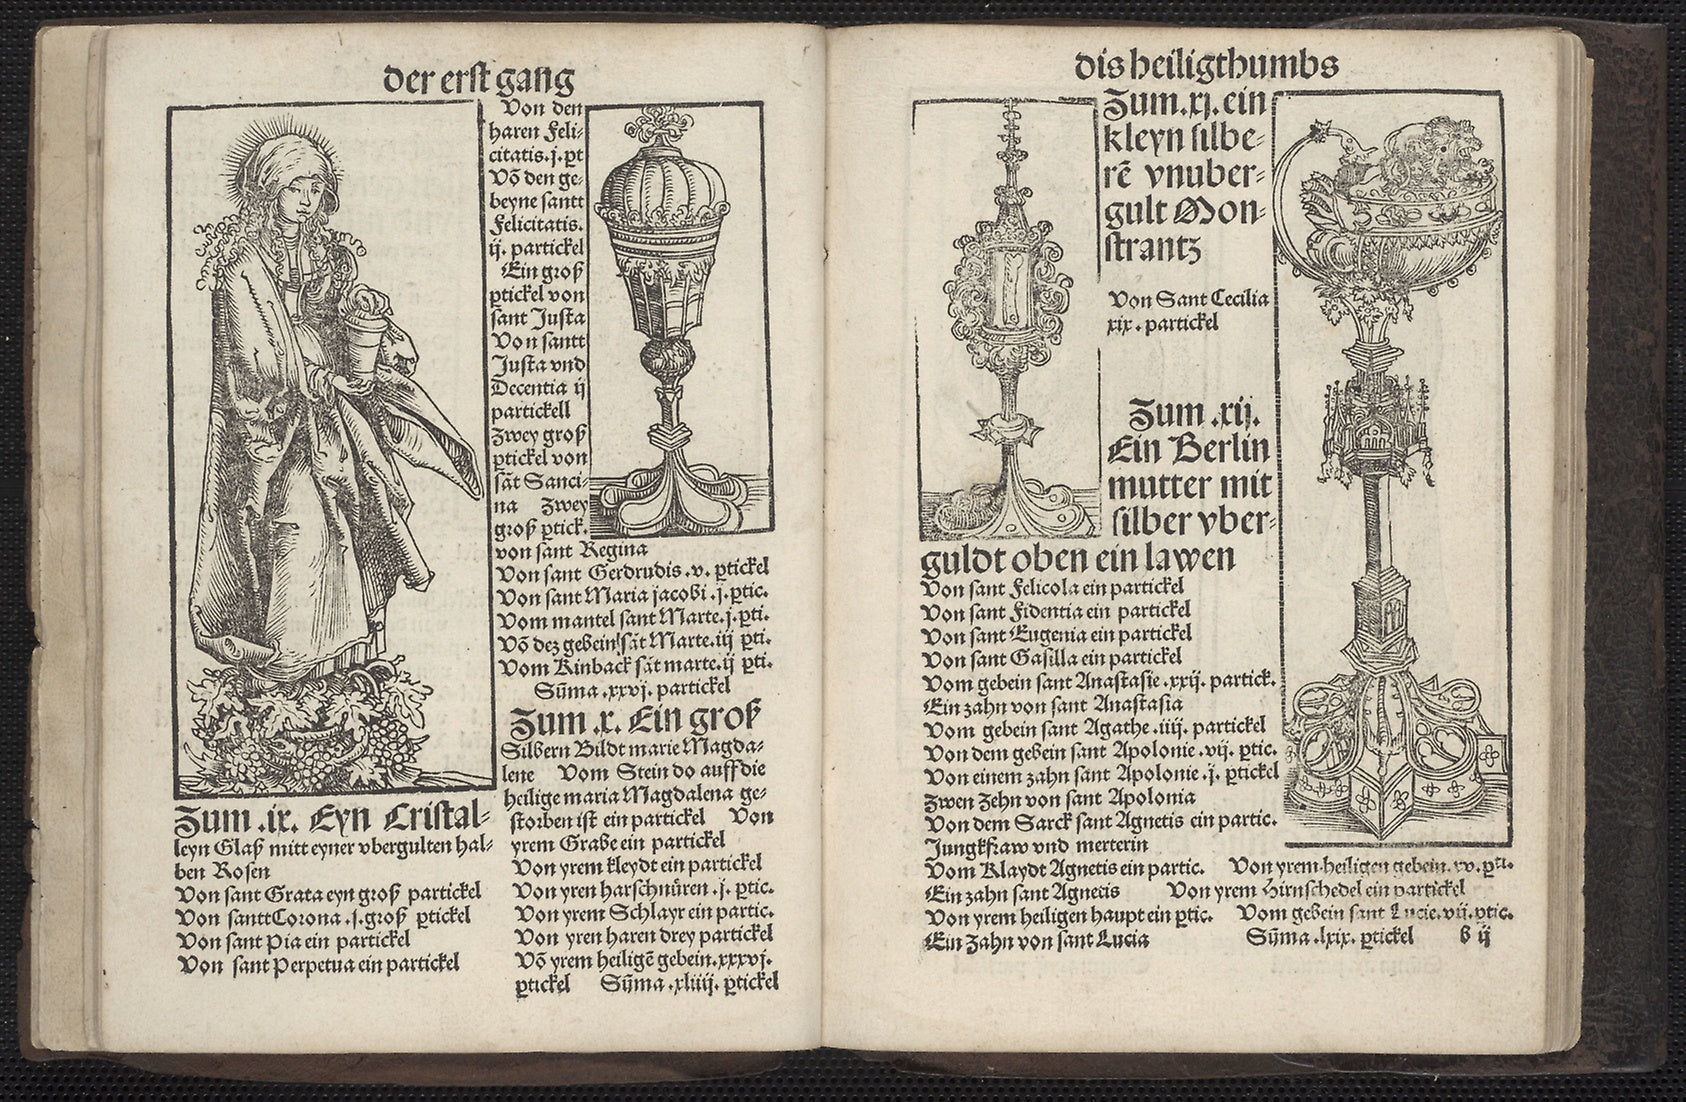 der erst gang
Zum .ix. Eyn Cristal-
leyn Glaß mitt eyner vbergulten hal-
ben Rosen
Von sant Grata eyn groß partickel
Von santt Corona .j. groß ꝑtickel
Von sant Pia ein partickel
Von sant Perpetua ein partickel
Von den
haren Feli-
citatis .j. ꝑt
Võ den ge-
beyne santt
Felicitatis.
ij. partickel
Ein groß
ꝑtickel von
sant Justa
Von santt
Justa vnd
Decentia ij
partickell
Zwey groß
ꝑtickel von
sãt Sanci-
na Zwey
groß ꝑtick.
von sant Regina
Von sant Gerdrudis .v. ꝑtickel
Von sant Maria jacobi .j. ꝑtic.
Vom mantel sant Marte .j. ꝑti.
Võ dez gebein sãt Marte .iij ꝑti.
Vom Kinback sãt marte .ij ꝑti.
Sũma .xxvj. partickel
Zum .x. Ein groß
Silbern Bildt marie Magda-
lene Vom Stein do auff die
heilige maria Magdalena ge-
storben ist ein partickel Von
yrem Grabe ein partickel
Von yrem kleydt ein partickel
Von yren harschnüren .j. ꝑtic.
Von yrem Schlayr ein partic.
Von yren haren drey partickel
Võ yrem heiligẽ gebein .xxxvj.
ꝑtickel Sũma .xliiij. ꝑtickel
dis heiligthumbs
Zum .xj. ein
kleyn silbe-
rẽ vnuber-
gult Mon-
strantz
Von Sant Cecilia
xix. partickel
Zum .xij.
Ein Berlin
mutter mit
silber vber-
guldt oben ein lawen
Von sant Felicola ein partickel
Von sant Fidentia ein partickel
Von sant Eugenia ein partickel
Von sant Gasilla ein partickel
Vom gebein sant Anastasie .xxij. partick.
Ein zahn von sant Anastasia
Vom gebein sant Agathe .iiij. partickel
Von dem gebein sant Apolonie .vij. ꝑtic.
Von einem zahn sant Apolonie .ij. ꝑtickel
Zwen Zehn von sant Apolonia
Von dem Sarck sant Agnetis ein partic.
Jungkfraw vnd merterin
Vom Klaydt Agnetis ein partic. Von yrem heiligen gebein .xv. ꝑti.
Ein zahn sant Agnetis Von yrem Hirnschedel ein partickel
Von yrem heiligen haupt ein ꝑtic. Vom gebein sant Lucie .vij. ꝑtic.
Ein Zahn von sant Lucia Sũma .lxix. ꝑtickel b ij